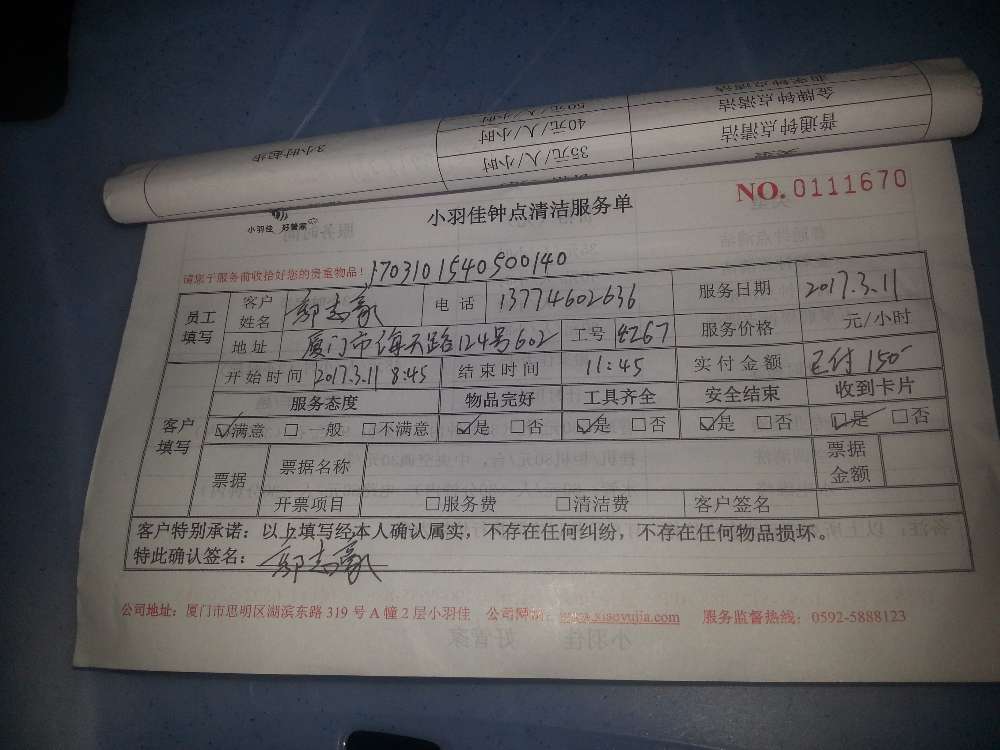 3小时起步
50元/人/小时
金牌钟点清洁
40元/人/小时
普通钟点清洁
35元/人/小时
NO.0111670
小羽佳 好管家
小羽佳钟点清洁服务单
请您于服务前收拾好您的贵重物品！ 1703101540500140
员工填写 客户姓名 郭志豪 电话 13774602636 服务日期 2017.3.11
地址 厦门市海天路124号602 工号 8267 服务价格 元/小时
开始时间 2017.3.11 8:45 结束时间 11:45 实付金额 已付150
客户填写 服务态度 物品完好 工具齐全 安全结束 收到卡片
☑满意 □一般 □不满意 ☑是 □否 ☑是 □否 ☑是 □否 ☑是 □否
票据 票据名称 票据金额
开票项目 □服务费 □清洁费 客户签名
客户特别承诺：以上填写经本人确认属实，不存在任何纠纷，不存在任何物品损坏。
特此确认签名： 郭志豪
公司地址：厦门市思明区湖滨东路 319 号 A 幢 2 层小羽佳 公司网站：www.xiaoyujia.com 服务监督热线：0592-5888123